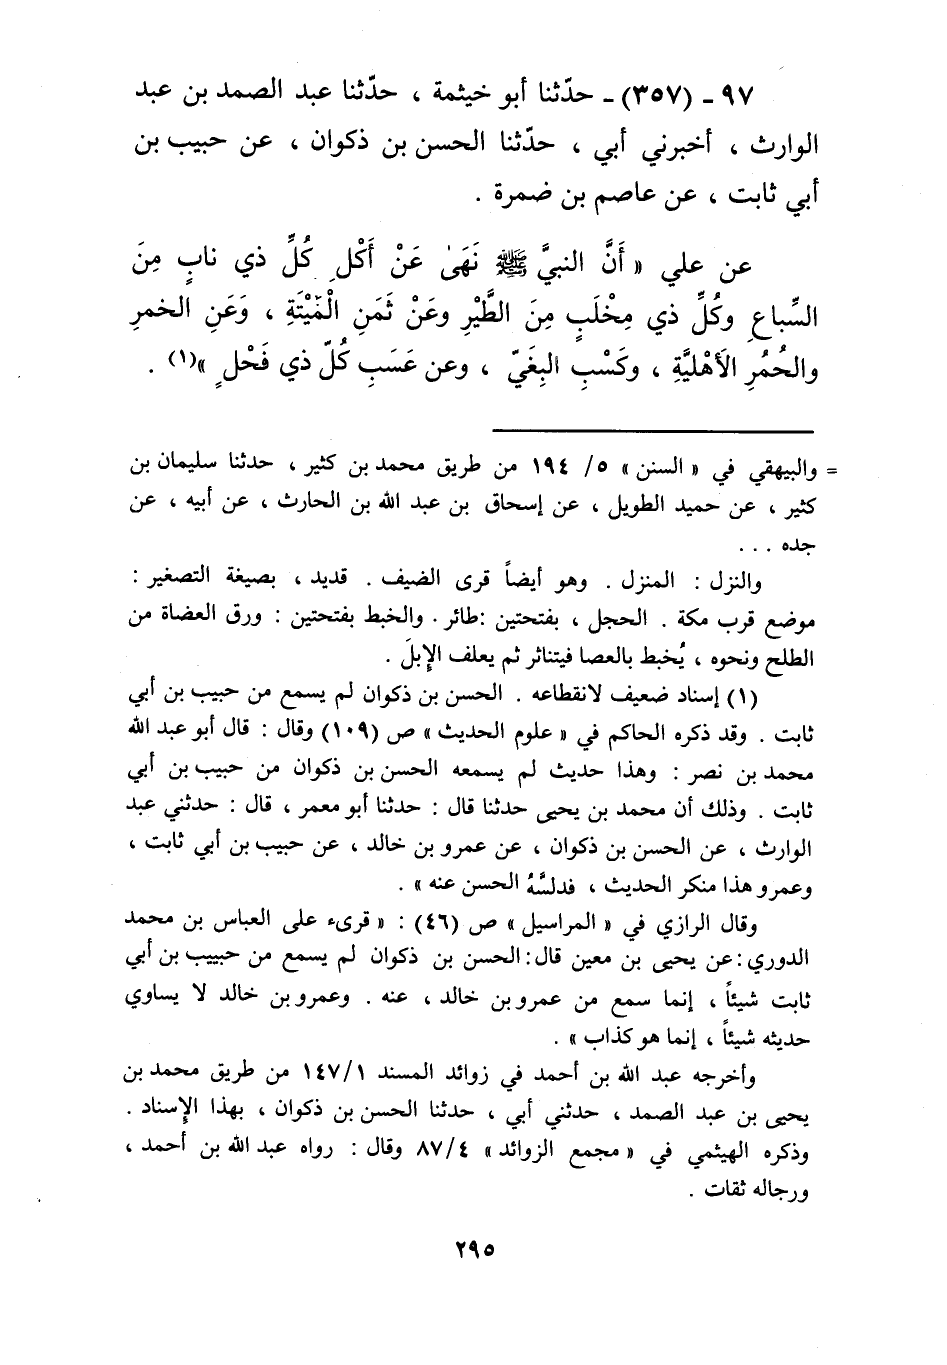 ٩٧ - (٣٥٧) - حدّثنا أبو خيثمة ، حدّثنا عبد الصمد بن عبد
الوارث ، أخبرني أبي ، حدّثنا الحسن بن ذكوان ، عن حبيب بن
أبي ثابت ، عن عاصم بن ضمرة .
عن علي « أَنَّ النبيَّ ﷺ نَهَىٰ عَنْ أَكْلِ كُلِّ ذي نابٍ مِنَ
السِّباعِ وكُلِّ ذي مِخْلَبٍ مِنَ الطَّيْرِ وعَنْ ثَمَنِ الْمَيْتَةِ ، وَعَنِ الخمرِ
والحُمُرِ الأَهْليَّةِ ، وكَسْبِ البِغَيّ ، وعن عَسَبِ كُلّ ذي فَحْلٍ »(١) .
= والبيهقي في « السنن » ٥/ ١٩٤ من طريق محمد بن كثير ، حدثنا سليمان بن
كثير ، عن حميد الطويل ، عن إسحاق بن عبد الله بن الحارث ، عن أبيه ، عن
جده . . .
والنزل : المنزل . وهو أيضاً قرى الضيف . قديد ، بصيغة التصغير :
موضع قرب مكة . الحجل ، بفتحتين :طائر . والخبط بفتحتين : ورق العضاة من
الطلح ونحوه ، يُخبط بالعصا فيتناثر ثم يعلف الإِبلَ .
(١) إسناد ضعيف لانقطاعه . الحسن بن ذكوان لم يسمع من حبيب بن أبي
ثابت . وقد ذكره الحاكم في « علوم الحديث » ص (١٠٩) وقال : قال أبو عبد الله
محمد بن نصر : وهذا حديث لم يسمعه الحسن بن ذكوان من حبيب بن أبي
ثابت . وذلك أن محمد بن يحيى حدثنا قال : حدثنا أبو معمر ، قال : حدثني عبد
الوارث ، عن الحسن بن ذكوان ، عن عمرو بن خالد ، عن حبيب بن أبي ثابت ،
وعمرو هذا منكر الحديث ، فدلسَّهُ الحسن عنه » .
وقال الرازي في « المراسيل » ص (٤٦) : « قرىء على العباس بن محمد
الدوري :عن يحيى بن معين قال : الحسن بن ذكوان لم يسمع من حبيب بن أبي
ثابت شيئاً ، إنما سمع من عمرو بن خالد ، عنه . وعمرو بن خالد لا يساوي
حديثه شيئاً ، إنما هو كذاب » .
وأخرجه عبد الله بن أحمد في زوائد المسند ١٤٧/١ من طريق محمد بن
يحيى بن عبد الصمد ، حدثني أبي ، حدثنا الحسن بن ذكوان ، بهذا الإِسناد .
وذكره الهيثمي في « مجمع الزوائد » ٨٧/٤ وقال : رواه عبد الله بن أحمد ،
ورجاله ثقات .
٢٩٥